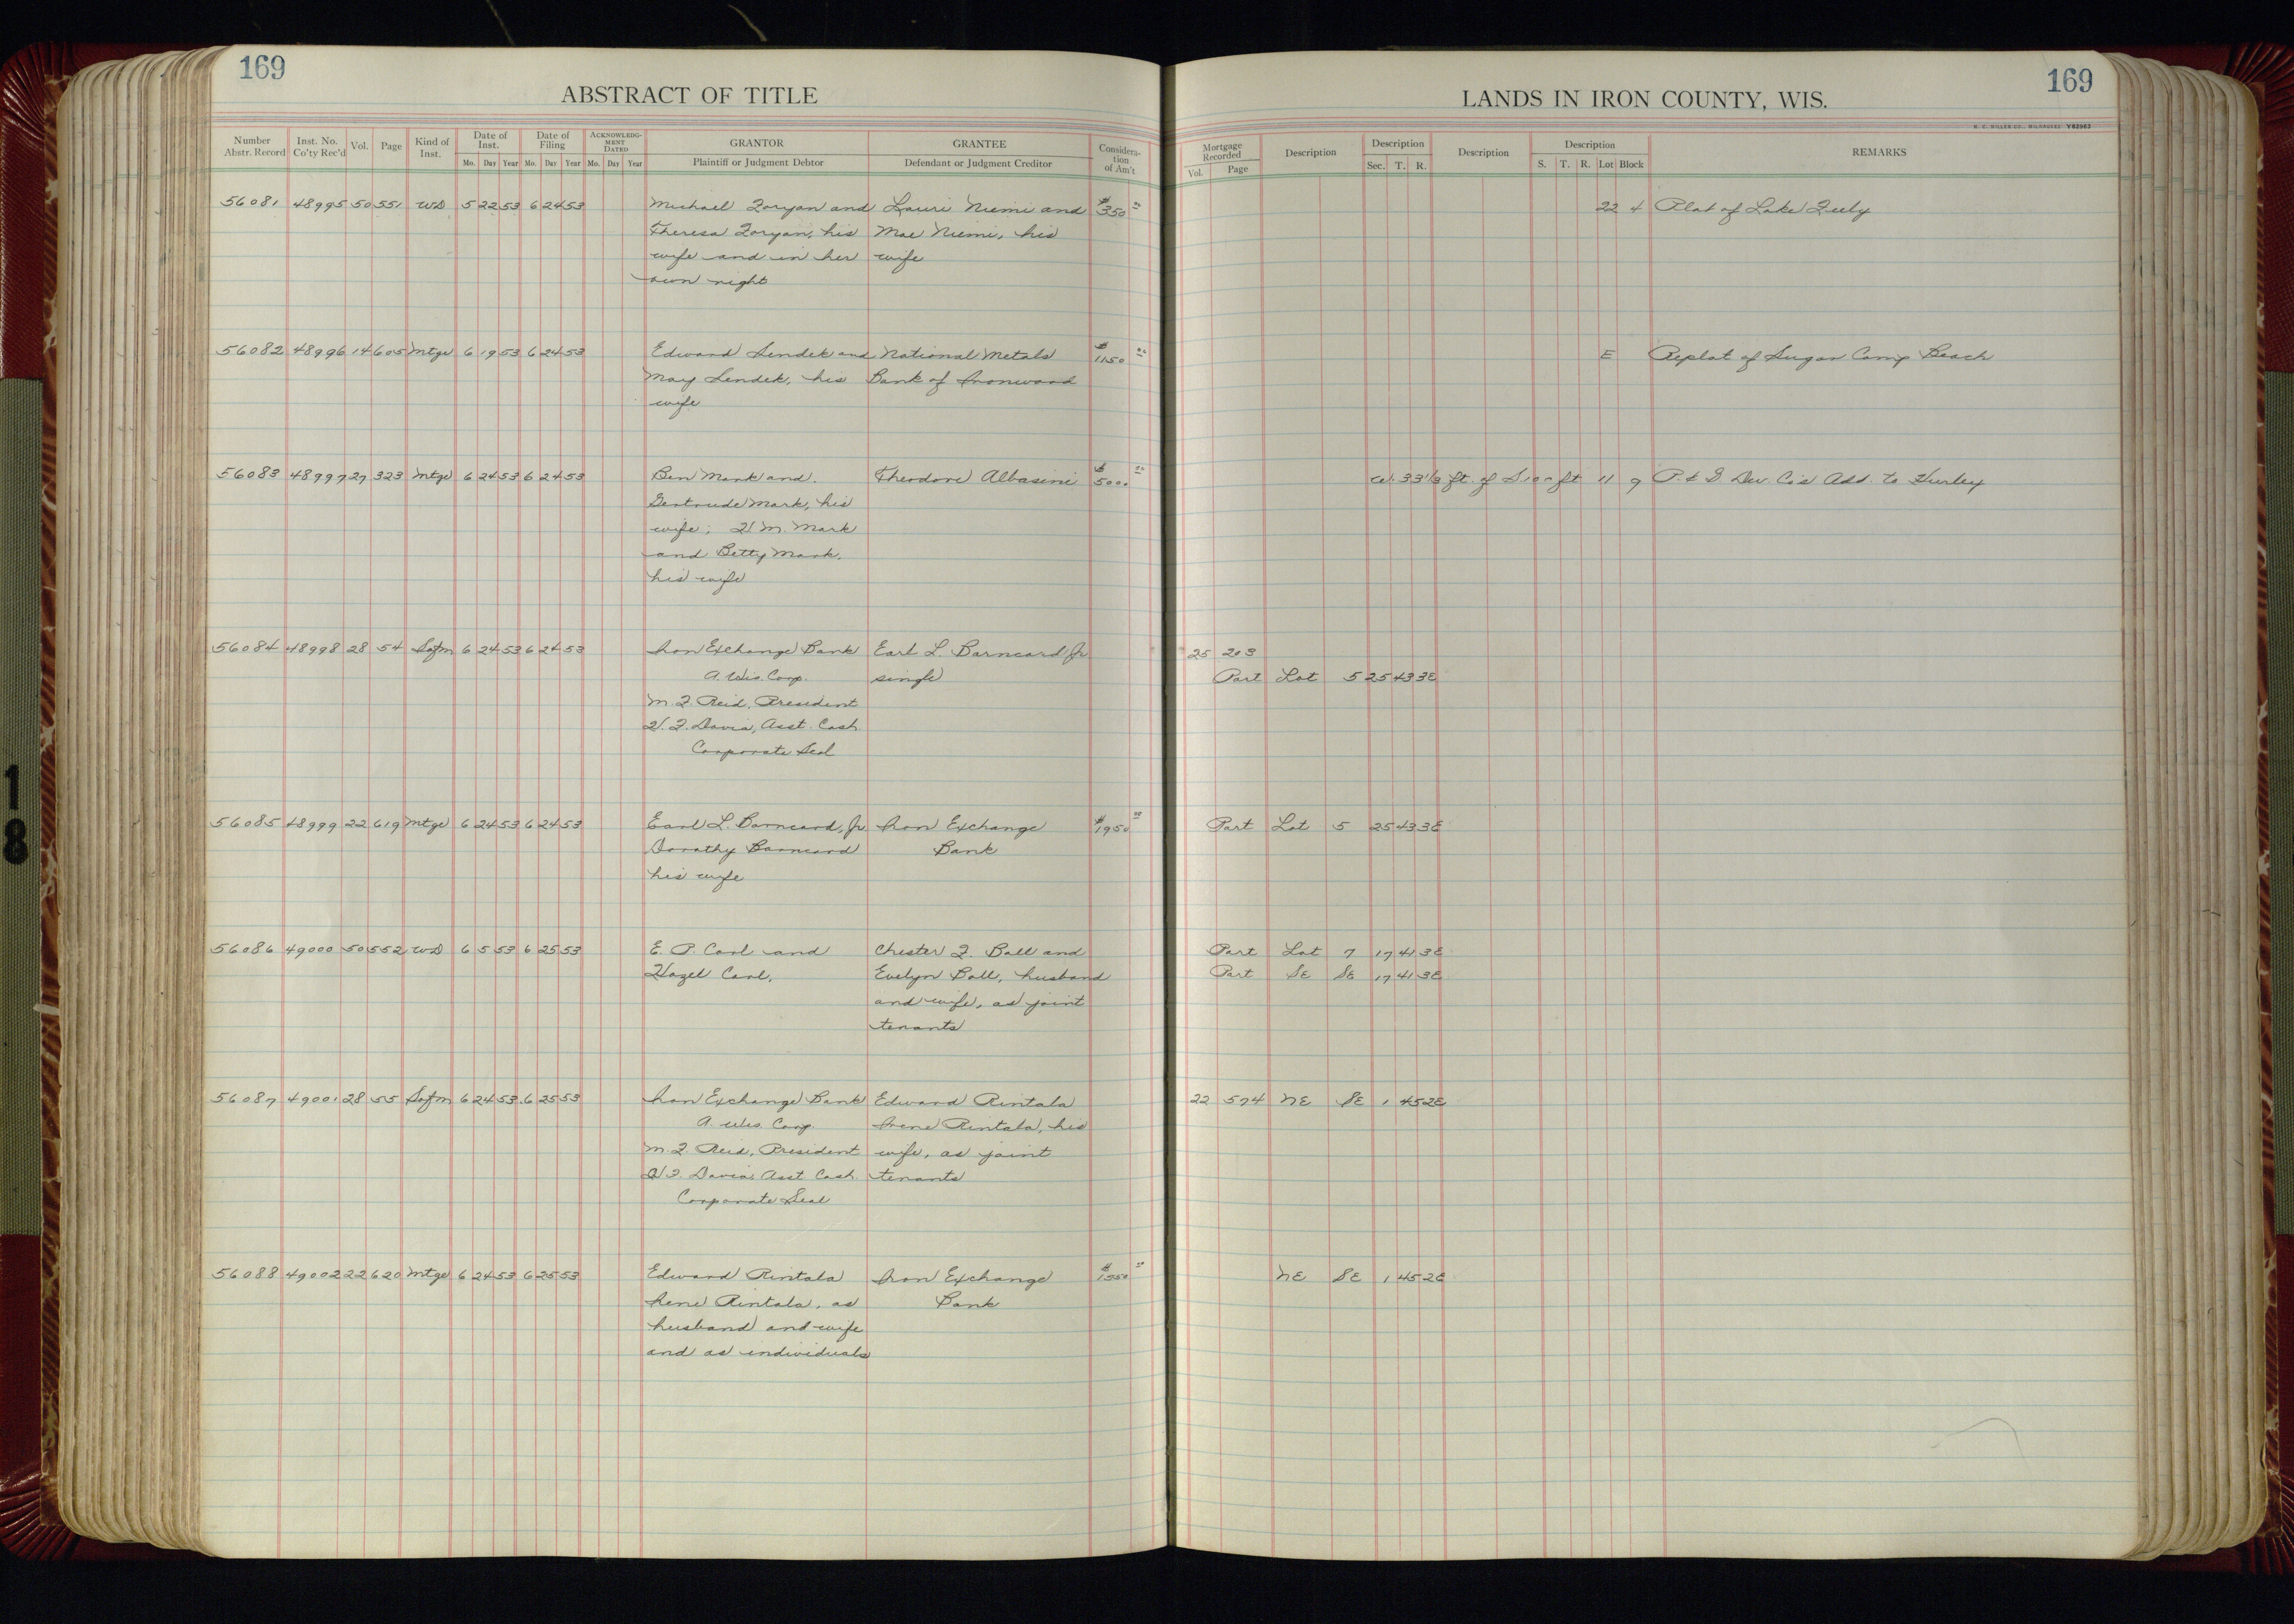 169
ABSTRACT OF TITLE
Number Abstr. Record Inst. No. Co'ty Rec'd Vol. Page Kind of Inst. Date of Inst. Date of Filing ACKNOWLEDG-MENT DATED GRANTOR GRANTEE Considera-tion of Am't
Mo. Day Year Mo. Day Year Mo. Day Year Plaintiff or Judgment Debtor Defendant or Judgment Creditor
56081 48995 50 551 WD 5 22 53 6 24 53 Michael Zoryan and Lauri Niemi and $350 00
Theresa Zoryan, his Mae Niemi, his
wife and in her wife
own right
56082 48996 14 605 Mtge 6 19 53 6 24 53 Edward Sendek and National Metals $1150 00
May Sendek, his Bank of Ironwood
wife
56083 48997 27 323 Mtge 6 24 53 6 24 53 Ben Mark and Theodore Albasini $5000 00
Gertrude Mark, his
wife; H. M. Mark
and Betty Mark,
his wife
56084 48998 28 54 Sofm 6 24 53 6 24 53 Iron Exchange Bank Earl L. Barneard Jr
A. Wis. Corp. single
M. J. Reid, President
H. F. Davia, Asst. Cash.
Corporate Seal
56085 48999 22 619 Mtge 6 24 53 6 24 53 Earl L. Barneard, Jr. Iron Exchange $1950 00
Dorothy Barneard Bank
his wife
56086 49000 50 552 WD 6 5 53 6 25 53 E. P. Carl and Chester F. Ball and
Hazel Carl, Evelyn Ball, husband
and wife, as joint
tenants
56087 49001 28 55 Sofm 6 24 53 6 25 53 Iron Exchange Bank Edward Rintala
A. Wis. Corp. Irene Rintala, his
M. J. Reid, President wife, as joint
H. F. Davia, Asst Cash. tenants
Corporate Seal
56088 49002 22 620 Mtge 6 24 53 6 25 53 Edward Rintala Iron Exchange $1550 00
Irene Rintala, as Bank
husband and wife
and as individuals
169
LANDS IN IRON COUNTY, WIS.
H. C. MILLER CO., MILWAUKEE
Mortgage Recorded Description Description Description Description REMARKS
Vol. Page Sec. T. R. S. T. R. Lot Block
22 4 Plat of Lake
E Replat of Sugar Camp Beach
W. 33 1/3 ft. of S 100 ft 11 9 P. & G. Dev. Co's Add. to Hurley
25 203
Part Lot 5 25 43 3E
Part Lot 5 25 43 3E
Part Lot 7 17 41 3E
Part SE SE 17 41 3E
22 574 NE SE 1 45 2E
NE SE 1 45 2E
18